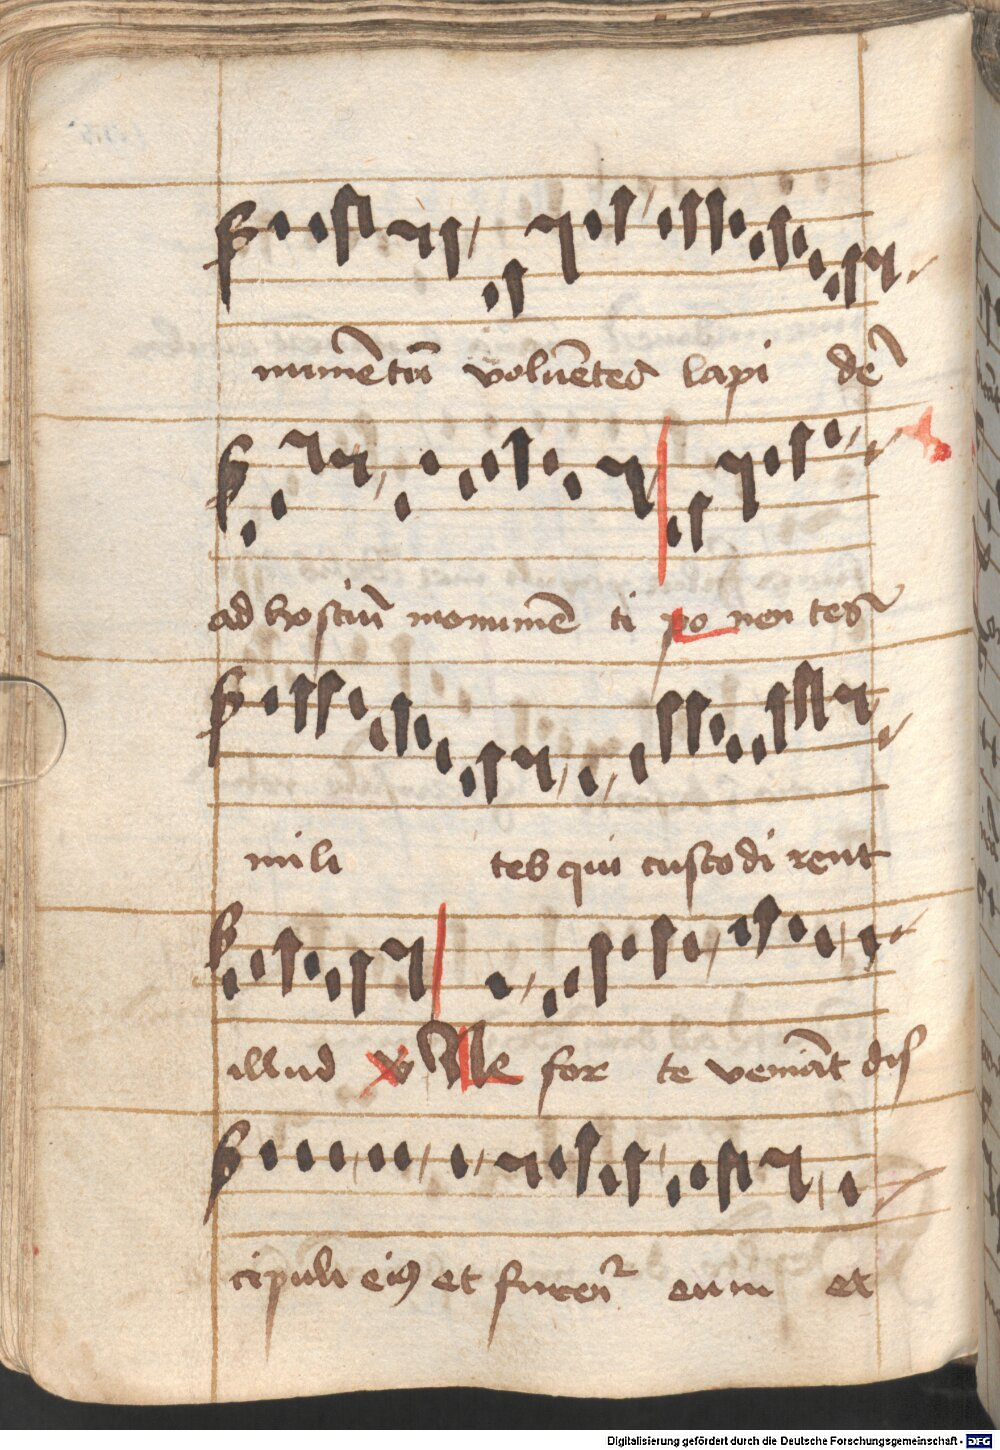 numētū volvētes lapi dē
ad hostiū monumē ti po nen tes
mili tes qui custodi rent
illud V Ne for te veniāt dis
cipuli ei9 et furent² eum et
Digitalisierung gefördert durch die Deutsche Forschungsgemeinschaft - DFG